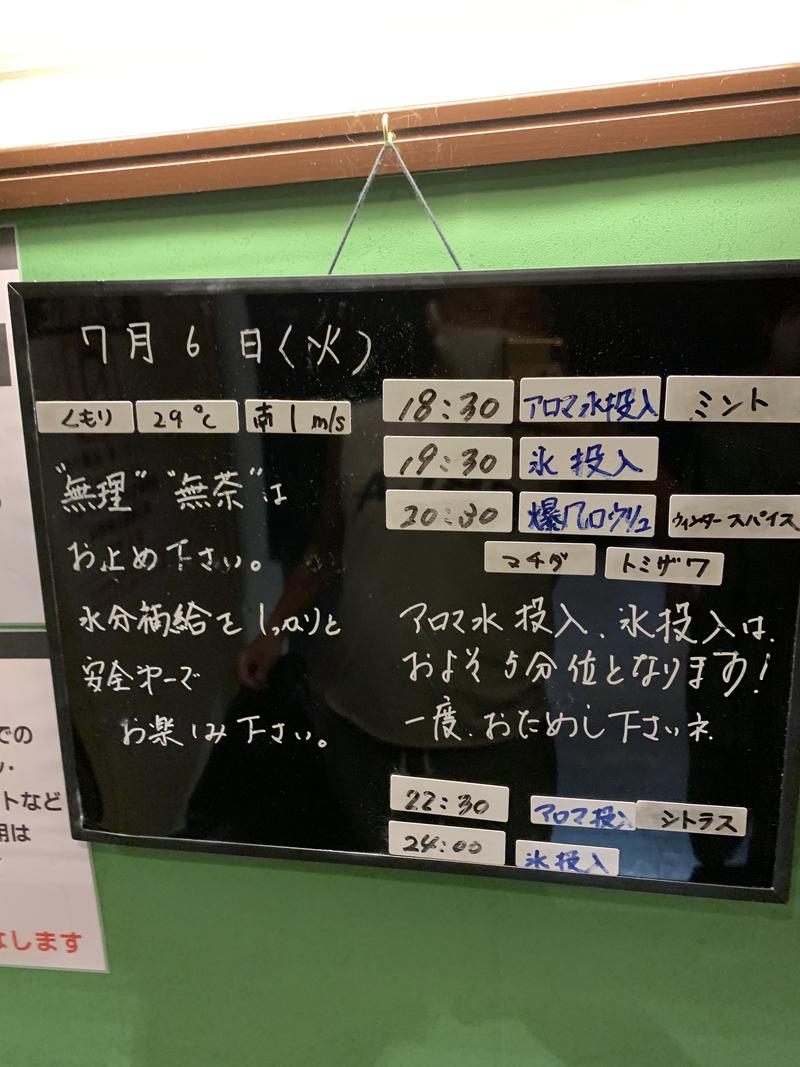 7月6日(火)
くもり 29℃ 南1m/s
"無理" "無茶"は
お止め下さい。
水分補給をしっかりと
安全第一で
お楽しみ下さい。
18:30 アロマ水投入 ミント
19:30 氷投入
20:30 爆風ロウリュ ウィンタースパイス
マチダ トミザワ
アロマ水投入、氷投入は、
およそ5分位となります!
一度、おためし下さいネ.
22:30 アロマ投入 シトラス
24:00 氷投入
での
トなど
用は
なします